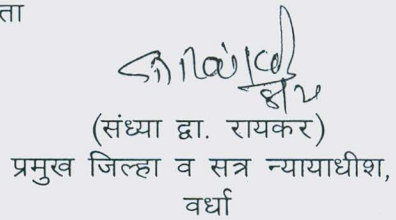 ता
(संध्या द्वा. रायकर)
प्रमुख जिल्हा व सत्र न्यायाधीश,
वर्धा